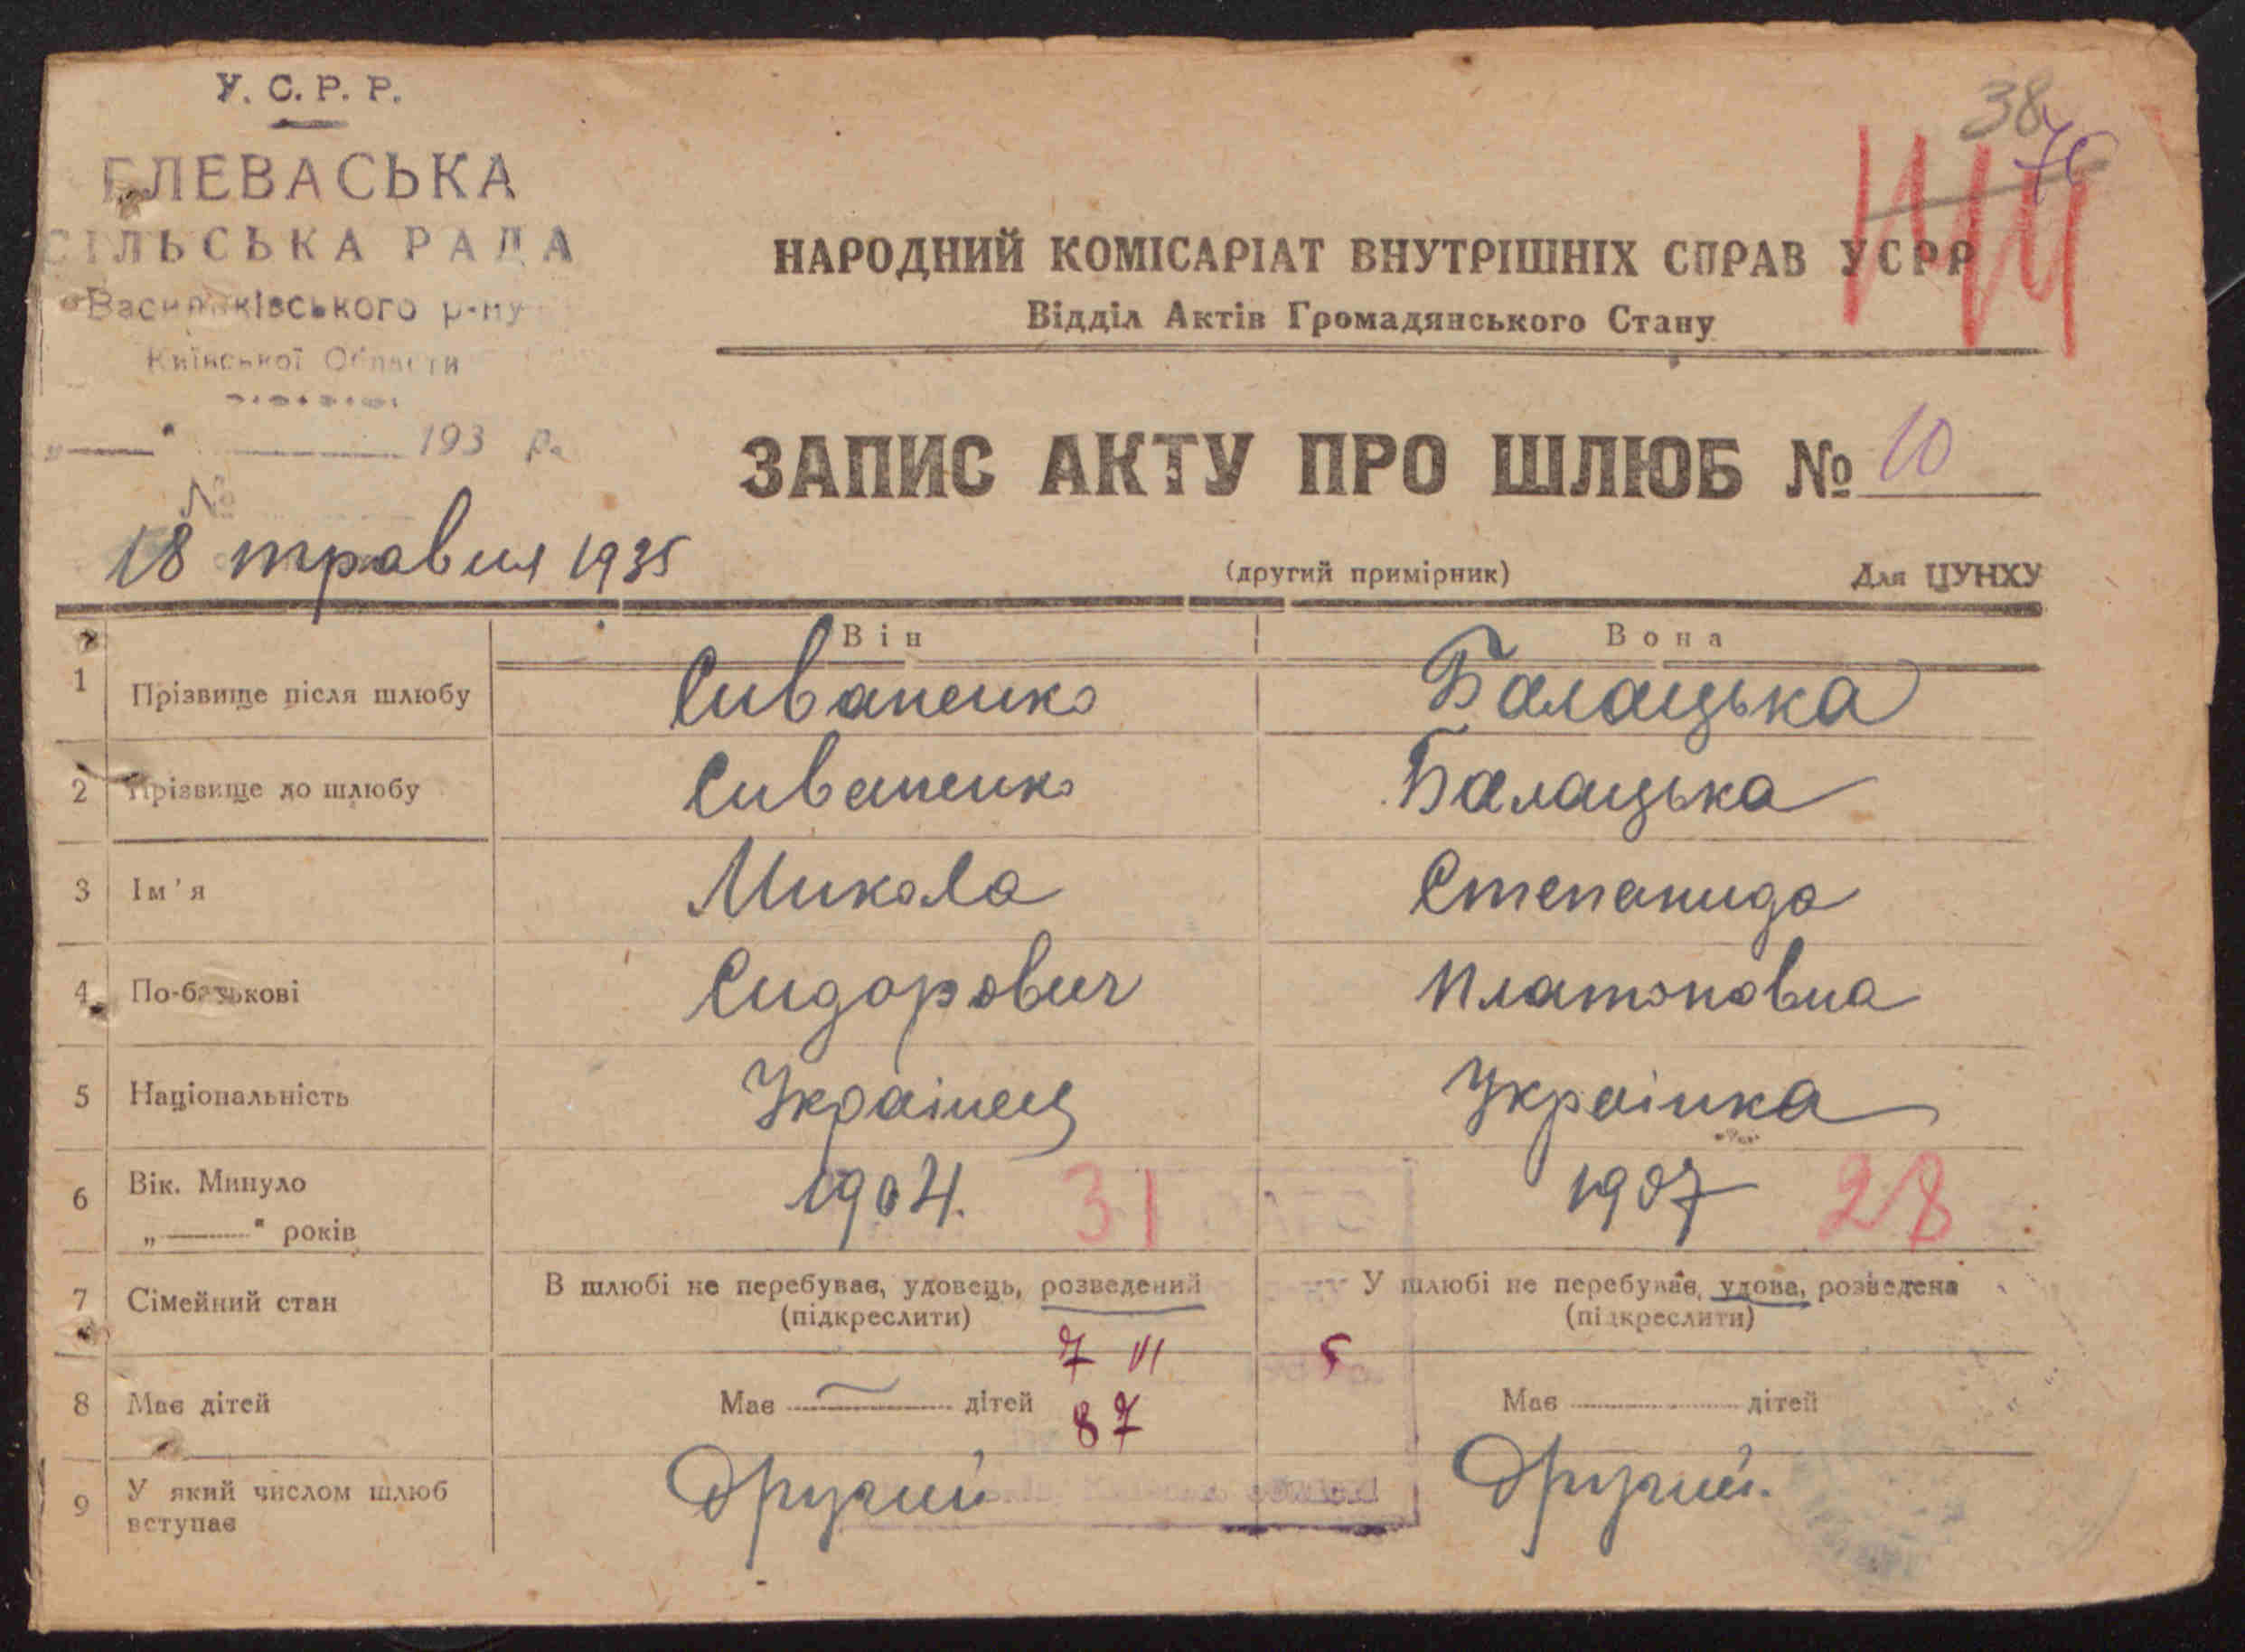 У. С. Р. Р.
ГЛЕВАСЬКА
СІЛЬСЬКА РАДА
Васильківського р-ну
Київської Области
„—“ 193 р.
№
18 травня 1935
38
76
НАРОДНИЙ КОМІСАРІАТ ВНУТРІШНІХ СПРАВ УСРР
Відділ Актів Громадянського Стану
ЗАПИС АКТУ ПРО ШЛЮБ № 10
(другий примірник) Для ЦУНХУ
Він Вона
1 Прізвище після шлюбу Сиваненко Балацька
2 Прізвище до шлюбу Сиваненко Балацька
3 Ім'я Микола Степанида
4 По-батькові Сидорович Платоновна
5 Національність Українец Українка
6 Вік. Минуло 1904. 31 1907 28
„—“ років
7 Сімейний стан В шлюбі не перебуває, удовець, розведений У шлюбі не перебуває, удова, розведена
(підкреслити) (підкреслити)
7 VI 5
8 Має дітей Має — дітей Має дітей
87
9 У який числом шлюб вступає Другий Другий.